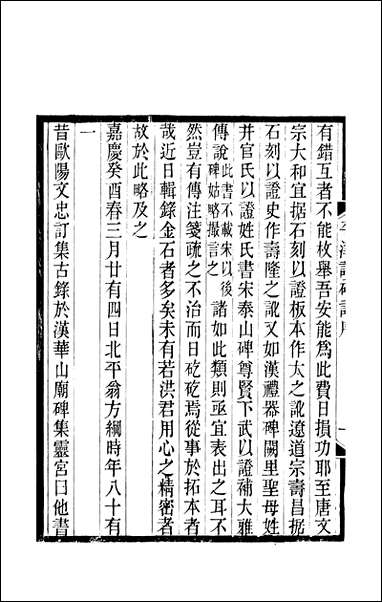 平津讀碑記序
一
有錯互者不能枚舉吾安能爲此費日損功耶至唐文
宗大和宜据石刻以證板本作太之訛遼道宗壽昌据
石刻以證史作壽隆之訛又如漢禮器碑闕里聖母姓
并官氏以證姓氏書宋泰山碑尊賢下武以證補大雅
傳說此書不載宋以後碑姑略撮言之諸如此類則亟宜表出之耳不
然豈有傳注箋疏之不治而日矻矻焉從事於拓本者
哉近日輯錄金石者多矣未有若洪君用心之精密者
故於此略及之
嘉慶癸酉春三月廿有四日北平翁方綱時年八十有
一
昔歐陽文忠訂集古錄於漢華山廟碑集靈宮曰他書